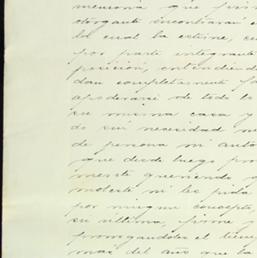 memoria que
otorgante encontrará
la cual la estime, se
por parte integrante
posición, entendiend
dan completamente fa
apoderarse de todo lo
su misma casa y
do sin necesidad
de persona ni auto
que desde luego pro
queriendo
moleste ni les pida
por ningun concepto,
su última, firme y
prorrogandoles el tiem
mas del año que la